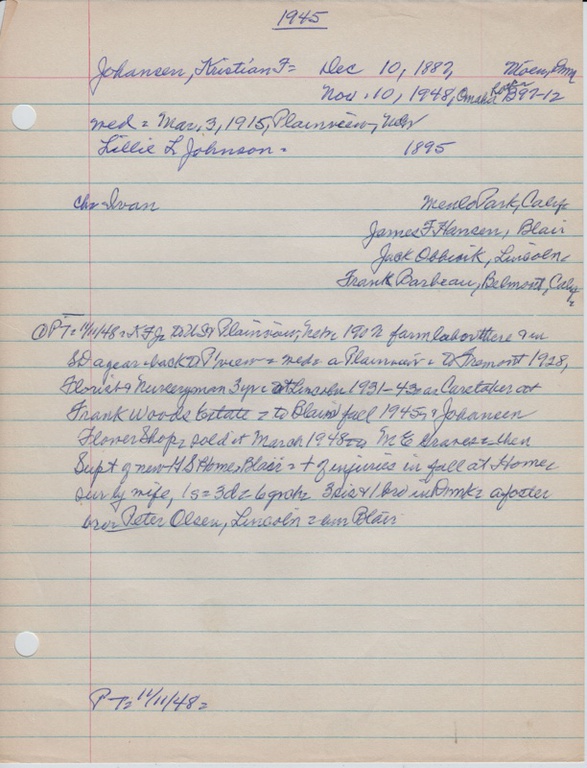 1945
Johansen, Kristian F= Dec 10, 1887, Moen, Dmk
Nov. 10, 1948, Omaha B97-12
wed = Mar, 3, 1915, Plainview, Neb
Lillie L Johnson = 1895
ch= Ivan Menlo Park, Calif
James F Hansen, Blair
Jack , Lincoln
Frank Barbeau, Belmont, Calif
PT= 11/11/48 = KFJ= to US Plainview, Neb farm labor there & in
SD a year = back to P'view = wed = a Plainview = to Fremont 1928,
Florist & Nurseryman 3 yr = Lincoln 1931-43 as Caretaker at
Frank Woods Estate = to Blair fall 1945 = Johansen
Flower Shop, sold it March 1948 to M E Graves = then
Supt of new Home Blair = + of injuries in fall at Home =
sur by wife, 1s = 3d = 6 grch = 3 sis & 1 bro in Dmk = a foster
bro = Peter Olsen, Lincoln = bur Blair
P T= 11/11/48 =